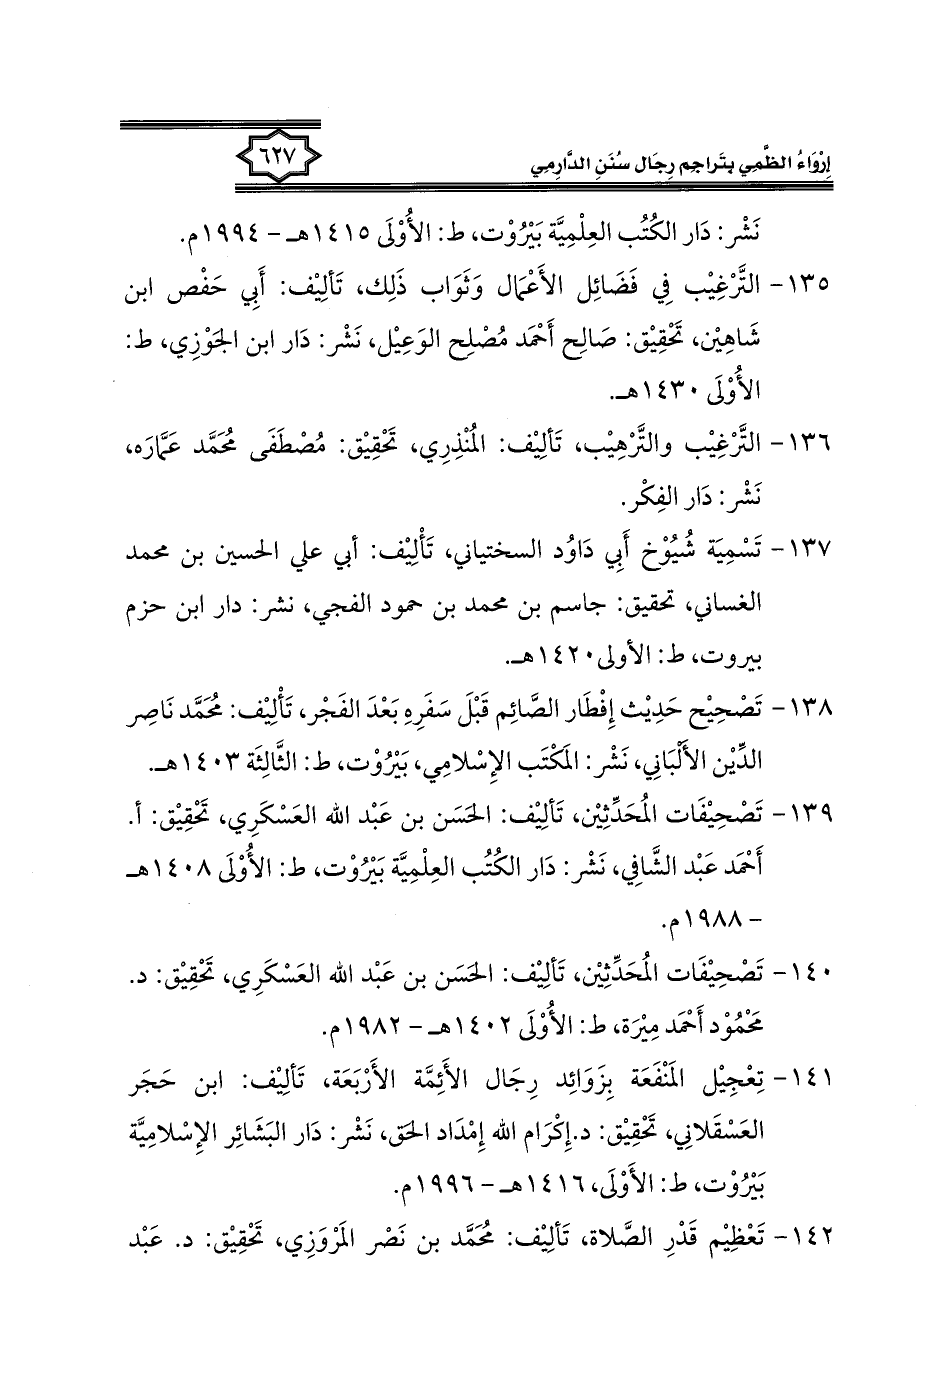 إِرْوَاءُ الظَّمِي بِتَراجِم رِجَال سُنَنِ الدَّارِمِي
٦٢٧
نَشْر: دَار الكُتُب العِلْمِيَّة بَيْرُوْت، ط: الأُوْلَى ١٤١٥هـ - ١٩٩٤م.
١٣٥- التَّرْغِيْب فِي فَضَائِل الأَعْمَال وَثَوَاب ذَلِك، تَأْلِيْف: أَبِي حَفْص ابن
شَاهِيْن، تَحْقِيْق: صَالِح أَحْمَد مُصْلِح الوَعِيْل، نَشْر: دَار ابن الجَوْزِي، ط:
الأُوْلَى ١٤٣٠هـ.
١٣٦- التَّرْغِيْب والتَّرْهِيْب، تَأْلِيْف: المُنْذِرِي، تَحْقِيْق: مُصْطَفَى مُحَمَّد عَمَّارَه،
نَشْر: دَار الفِكْر.
١٣٧- تَسْمِيَة شُيُوْخ أَبِي دَاوُد السختياني، تَأْلِيْف: أبي علي الحسين بن محمد
الغساني، تحقيق: جاسم بن محمد بن حمود الفجي، نشر: دار ابن حزم
بيروت، ط: الأولى ١٤٢٠هـ.
١٣٨- تَصْحِيْح حَدِيْث إِفْطَار الصَّائِم قَبْلَ سَفَرِهِ بَعْدَ الفَجْر، تَأْلِيْف: مُحَمَّد نَاصِر
الدِّيْن الأَلْبَانِي، نَشْر: المَكْتَب الإِسْلامِي، بَيْرُوْت، ط: الثَّالِثَة ١٤٠٣هـ.
١٣٩- تَصْحِيْفَات المُحَدِّثِيْن، تَأْلِيْف: الحَسَن بن عَبْد الله العَسْكَرِي، تَحْقِيْق: أ.
أَحْمَد عَبْد الشَّافِي، نَشْر: دَار الكُتُب العِلْمِيَّة بَيْرُوْت، ط: الأُوْلَى ١٤٠٨هـ
- ١٩٨٨م.
١٤٠- تَصْحِيْفَات المُحَدِّثِيْن، تَأْلِيْف: الحَسَن بن عَبْد الله العَسْكَرِي، تَحْقِيْق: د.
مَحْمُوْد أَحْمَد مِيْرَة، ط: الأُوْلَى ١٤٠٢هـ - ١٩٨٢م.
١٤١- تِعْجِيْل المَنْفَعَة بِزَوَائِد رِجَال الأَئِمَّة الأَرْبَعَة، تَأْلِيْف: ابن حَجَر
العَسْقَلاني، تَحْقِيْق: د.إِكْرَام الله إِمْدَاد الحَق، نَشْر: دَار البَشَائِر الإِسْلامِيَّة
بَيْرُوْت، ط: الأَوْلَى، ١٤١٦هـ - ١٩٩٦م.
١٤٢- تَعْظِيْم قَدْرِ الصَّلاة، تَأْلِيْف: مُحَمَّد بن نَصْر المَرْوَزِي، تَحْقِيْق: د. عَبْد